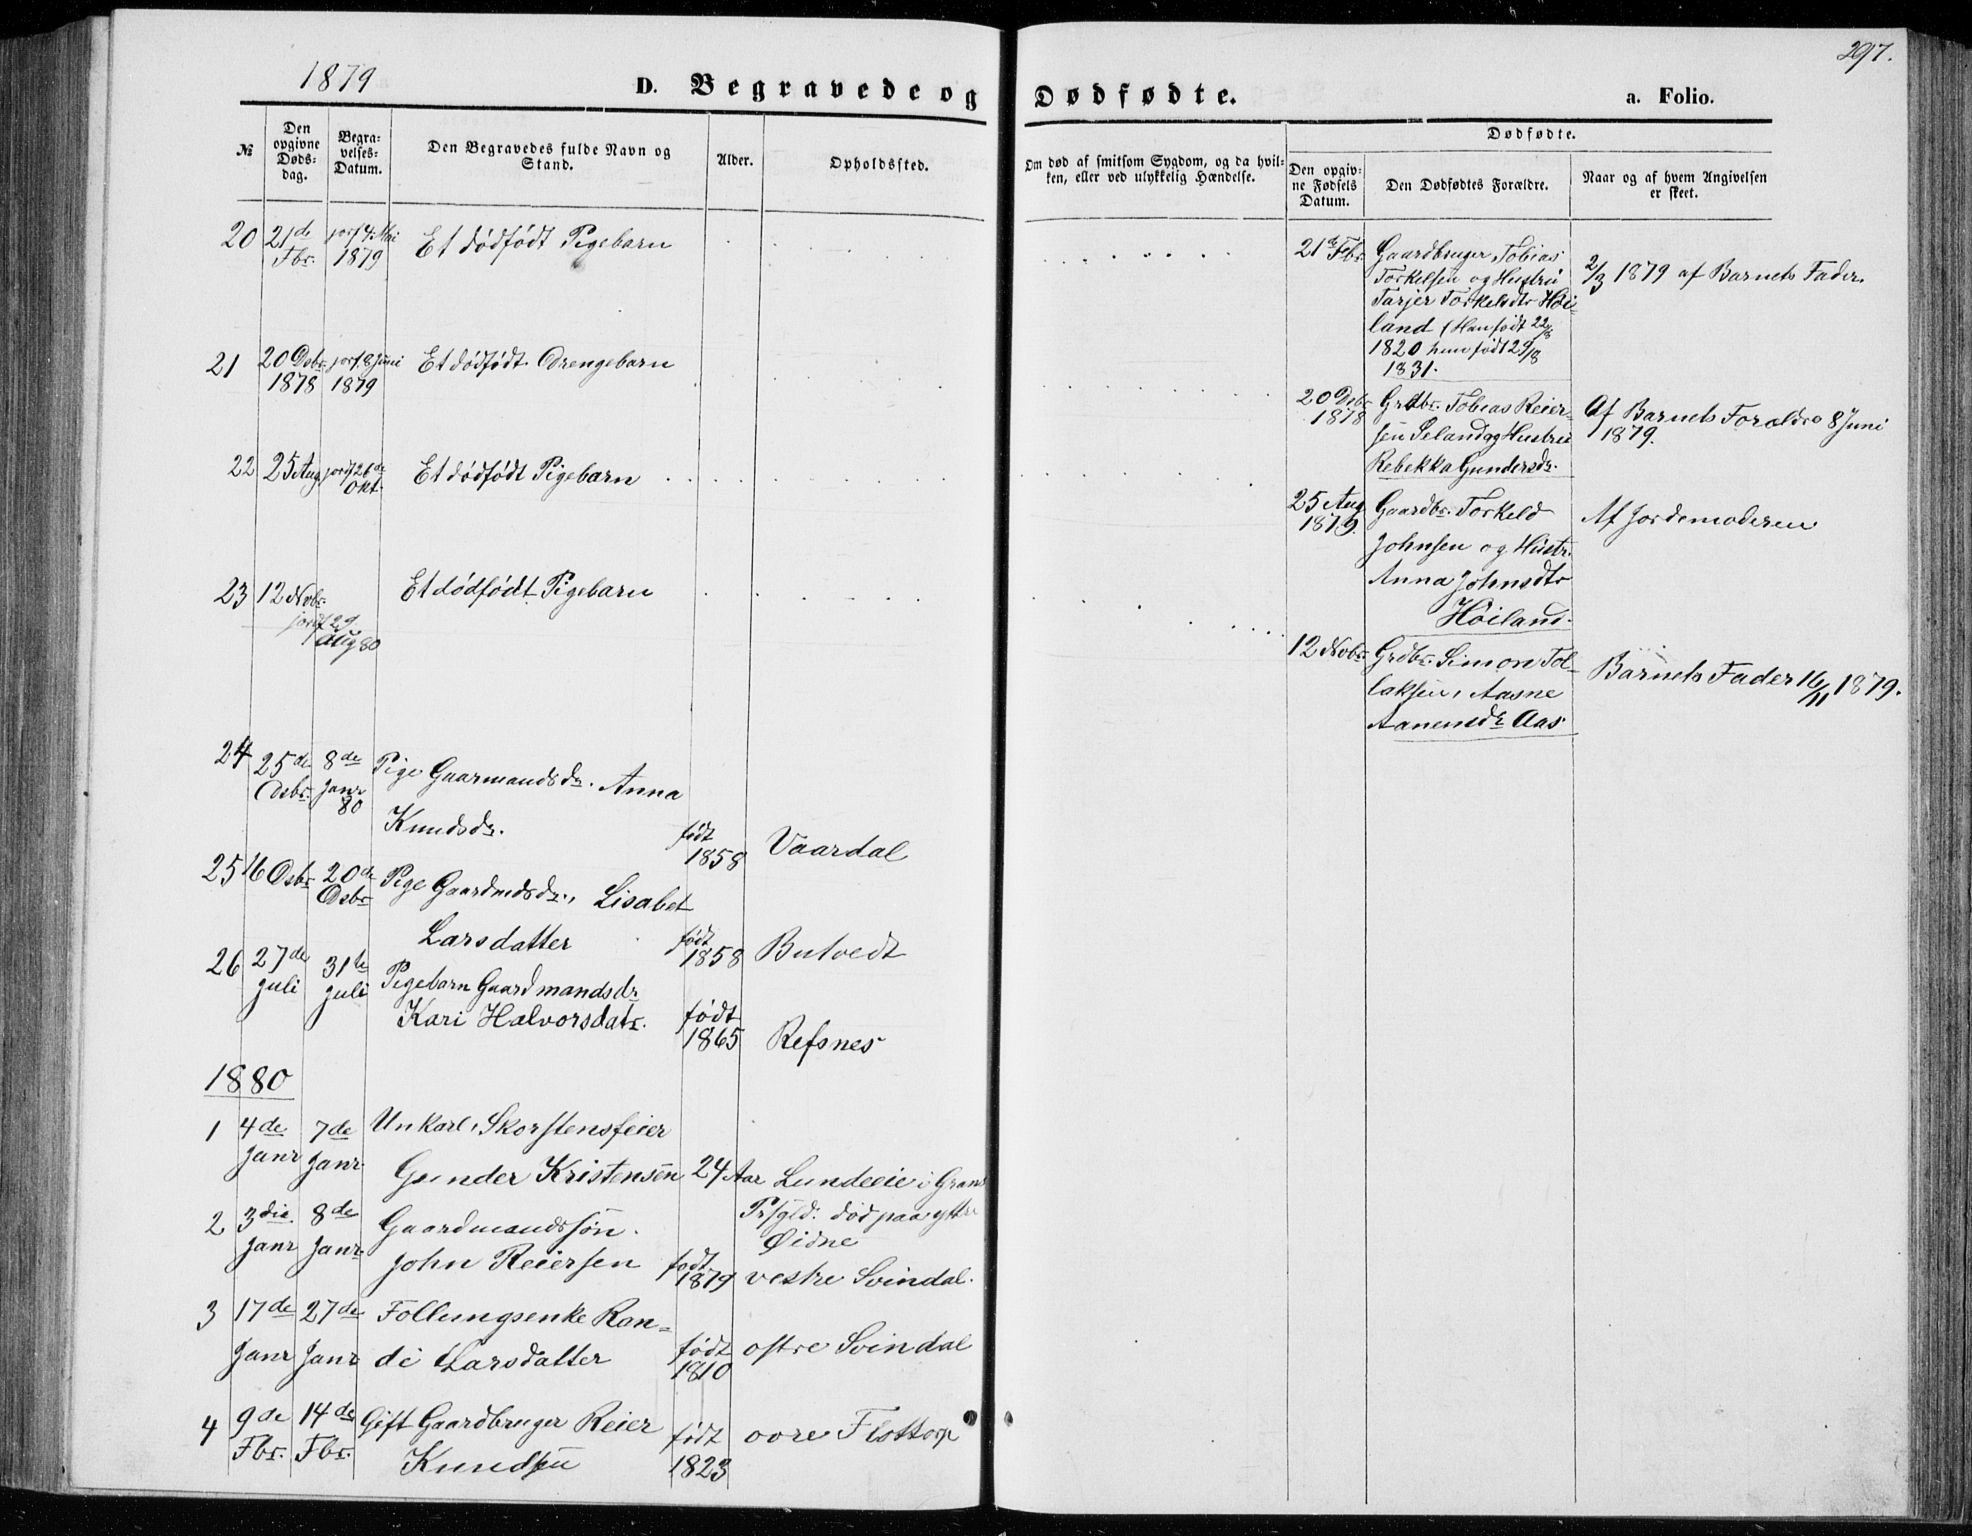 1879
D. Begravede og Dødfødte.
a. Folio.
297.
№
Den opgivne Døds-dag.
Begra-velses-Datum.
Den Begravedes fulde Navn og Stand.
Alder.
Opholdssted.
Om død af smitsom Sygdom, og da hvil-ken, eller ved ulykkelig Hændelse.
Dødfødte.
Den opgiv-ne Fødsels Datum.
Den Dødfødtes Forældre.
Naar og af hvem Angivelsen er skeet.
20 21de Fbr. jordf 4 Mai 1879 Et dødfødt Pigebarn
21de Fbr. Gaardbruger Tobias
Torkelsen og Hustru
Tarjer Torkelsdtr Høi-
land (Han født 22/8
1820 hun født 29/8
1831.
2/3 1879 af Barnets Fader.
21 20 Dsbr. 1878 jordf 8 Juni 1879 Et dødfødt Drengebarn
20 Dsbr 1878 Grdbr. Tobias Reier-
sen Seland og Hustru
Rebekka Gundersdr.
Af Barnets Forældre 8 Juni
1879.
22 25 Aug jordf 26de Okt. Et dødfødt Pigebarn
25 Aug 1879. Gaardbr. Torkeld
Johnsen og Hustr.
Anna Johnsdtr
Høiland.
Af Jordemoderen
23 12 Nvbr. jordf 29 Aug 80 Et dødfødt Pigebarn
12 Nvbr. Grdbr. Simon Tol-
laksen, Aasne
Aanensdr Aas.
Barnets Fader 16/11 1879.
24 25de Dsbr. 8de Janr 80 Pige Gaarmandsdr. Anna
Knudsdr. født 1858 Vaardal
25 16 Dsbr 20de Dsbr Pige Gaardmdsdr., Lisabet
Larsdatter født 1858 Butvedt
26 27de Juli 31te Juli Pigebarn Gaardmandsdr
Kari Halvorsdatr. født 1865 Refsnes
1880
1 4de Janr 7de Janr. Unkarl, Skorstensfeier
Gunder Kristensen 24 Aar Lundeeie i Grans
Prsgld. død paa yttre
Øidne
2 3die Janr 8de Janr. Gaardmandssøn.
John Reiersen født 1879 vestre Svindal.
3 17de Janr 27de Janr Follungsenke Ran-
di Larsdatter født 1810 østre Svindal
4 9de Fbr. 14de Fbr. Gift Gaardbruger Reier
Knudsen født 1823 øvre Flottorp